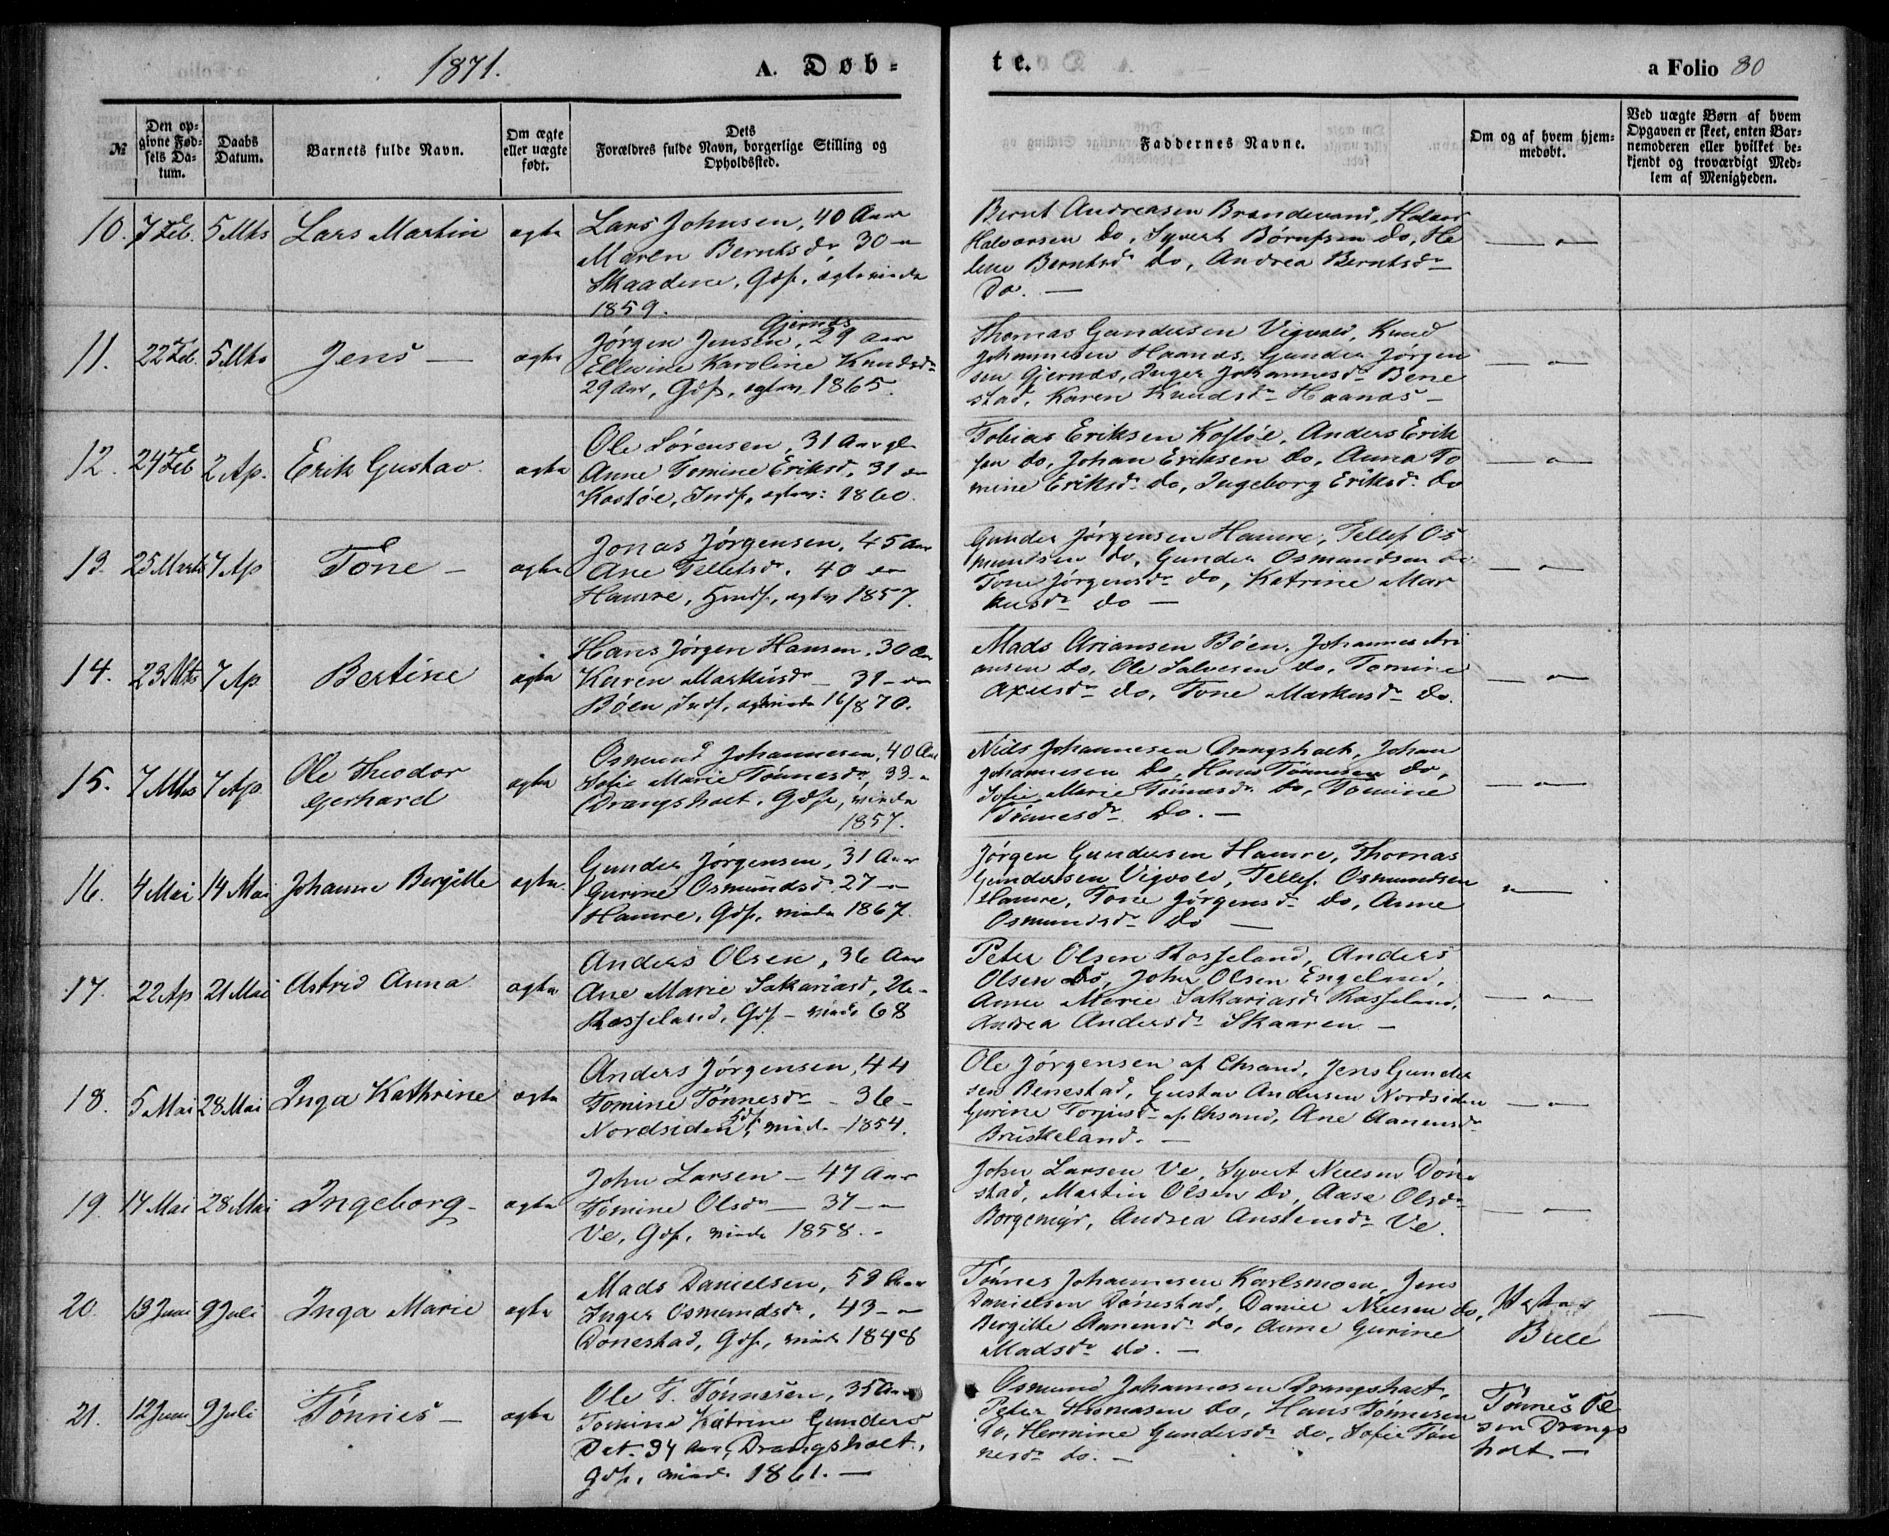 1871.
A. Døb=
te.
a Folio 80
№
Den op-
givne Fød-
sels Da-
tum.
Daabs
Datum.
Barnets fulde Navn.
Om ægte
eller uægte
født.
Dets
Forældres fulde Navn, borgerlige Stilling og
Opholdssted.
Faddernes Navne.
Om og af hvem hjem-
medøbt.
Ved uægte Børn af hvem
Opgaven er skeet, enten Bar-
nemoderen eller hvilket be-
kjendt og troværdigt Med-
lem af Menigheden.
10. 7 Feb. 5 Mts Lars Martin ægte
Lars Johnsen, 40 Aar
Maren Berntsdr 30 –
Skaadene, Gdf, ægteviede
1859.
Bernt Andreasen Brandevand, Halvor
Halvorsen do, Syvert Børufsen do, He
lene Berntsdr do, Andrea Berntsdr
Do. —
11. 22 Feb. 5 Mts Jens — ægte
Gjernæs
Jørgen Jensen, 29 Aar
Ellevine Karoline Knudsdr
29 Aar, Gdf, ægtev 1865.
Thomas Gundersen Vigvold, Knud
Johannesen Haanæs, Gunder Jørgen
sen Gjernæs, Inger Johannesdr Bene
stad, Karen Knudsdr Haanæs —
12. 24 Feb 2 Ap. Erik Gustav. ægte
Ole Sørensen, 31 Aar gl
Anne Tomine Eriksd, 31 –
Kostøe, Indf, ægtev: 1860.
Tobias Eriksen Kostøe, Anders Erik
sen do, Johan Eriksen do, Anna To
mine Eriksdr do, Ingeborg Eriksdr do
13. 25 Marts 7 Ap Tone — ægte
Jonas Jørgensen, 45 Aar
Ane Tellefsdr. 40 –
Hamre, Hmdf, ægtev 1857.
Gunder Jørgensen Hamre, Tellef Os
mundsen do, Gunder Osmundsen do
Tone Jørgensdr do, Katrine Mar
kusdr do —
14. 23 Mts 7 Ap. Bertine ægte
Hans Jørgen Hansen, 30 Aar
Karen Markusdr — 31 –
Bøen, Indf, ægteviede 16/8 70.
Mads Ariansen Bøen, Johannes Ari
ansen do, Ole Salvesen do, Tomine
Axelsdr do, Tone Markusdr do.
15. 7 Mts 7 Ap. Ole Theodor
Gerhard ægte
Osmund Johannesen, 40 Aar
Sofie Marie Tønnesdr, 33 –
Drangsholt, Gdf, viede
1857.
Niels Johannesen Drangsholt, Johan
Johannesen Do, Hans Tønnesen do,
Sofie Marie Tønnesdr do, Tomine
Tønnesdr Do. —
16. 4 Mai 14 Mai Johanne Bergitte ægte.
Gunder Jørgensen, 31 Aar
Gurine Osmundsdr. 27 –
Hamre, Gdf, viede 1867.
Jørgen Gundersen Hamre, Thomas
Gundersen Vigvold, Tellef Osmundsen
Hamre, Tone Jørgensdr do, Anne
Osmundsdr Do —
17. 22 Ap 21 Mai Astrid Anna ægte
Anders Olsen, 36 Aar
Ane Marie Sakariasd, 26 –
Rosseland, Gdf – viede 68
Peter Olsen Rosseland, Anders
Olsen Do, John Olsen Engeland,
Anne Marie Sakariasdr Rosseland,
Andrea Andersdr Skaaren —
18. 5 Mai 28 Mai Inga Kathrine ægte
Anders Jørgensen, 44
Tomine Tønnesdr – 36 –
Nordsiden Gdf, viede – 1854.
Ole Jørgensen af Chrsand, Jens Gunder
sen Benestad, Gustav Andersen Nordsiden
Gurine Torjusdr af Chrsand, Ane Aanensdr
Bruskeland. —
19. 14 Mai 28 Mai Ingeborg – ægte
John Larsen – 47 Aar
Tomine Olsdr – 37 –
Ve, Gdf, viede 1858. –
John Larsen Ve, Syvert Nielsen Døne
stad, Martin Olsen do, Aase Olsdr
Borgemyr, Andrea Austensdr Ve.
20. 13 Juni 9 Juli Inga Marie ægte
Mads Danielsen, 59 Aar
Inger Osmundsdr. 43 –
Dønestad, Gdf, viede 1848
Tønnes Johannesen Karlsmoen, Jens
Danielsen Dønestad, Daniel Nielsen do,
Bergitte Aanensdr do, Anne Gurine
Madsdr do. —
Bull
21. 12 Juni 9 Juli Tønnes – ægte
Ole T. Tønnesen, 35 Aar
Tomine Katrine Gunders
Dat. 34 Aar, Drangsholt,
Gdf, viede 1861. —
Osmund Johannesen Drangsholt,
Peter Thomasen do, Hans Tønnesen
do, Hermine Gundersdr do, Sofie Tøn
nesdr do. —
Tønnes Ol
sen Drangs
holt —